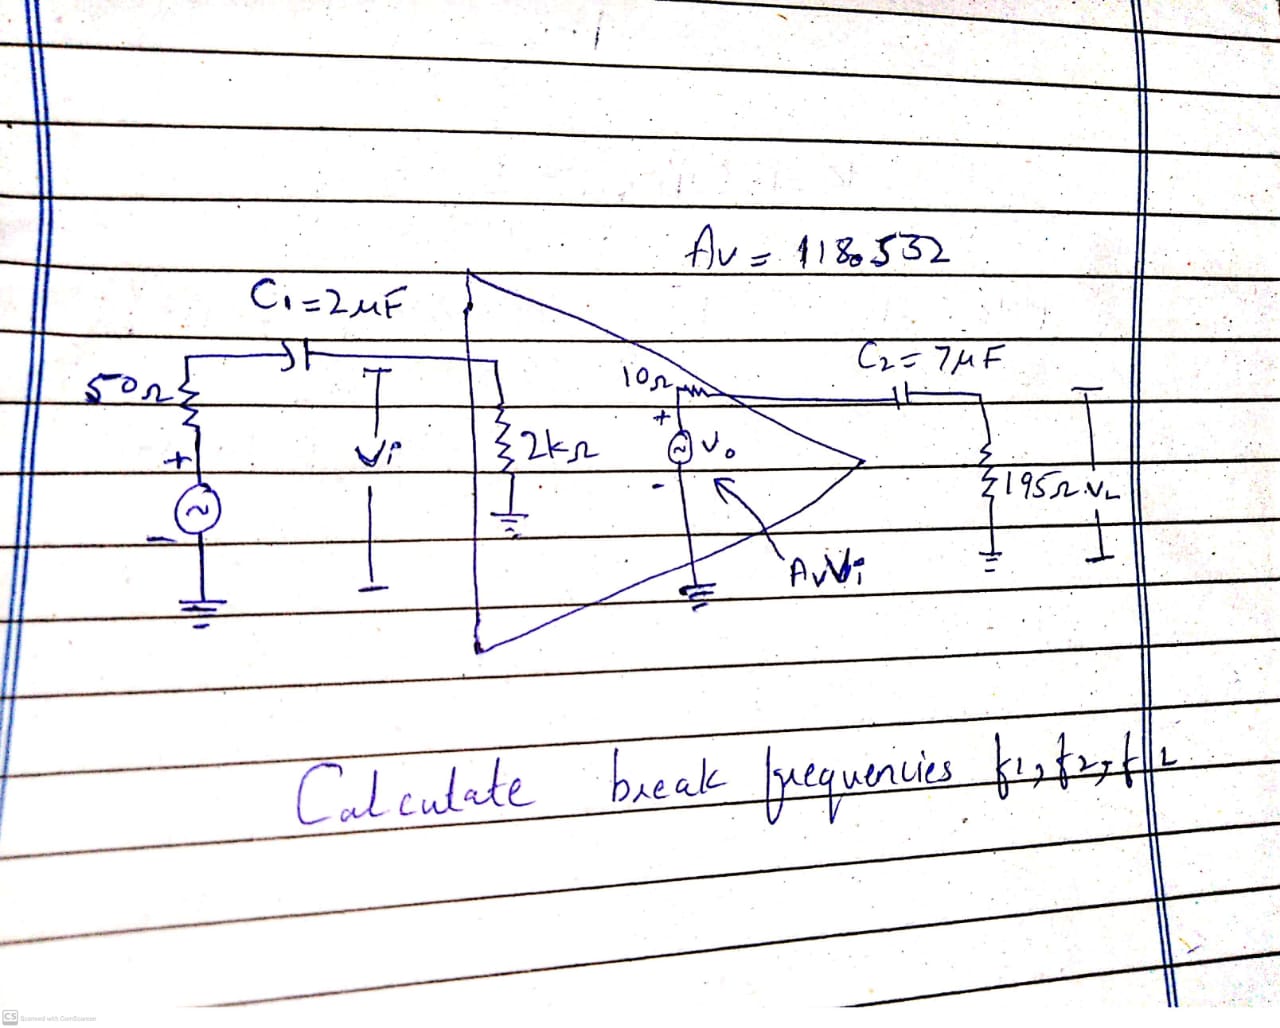 Av = 118.532
C1 = 2μF
C2 = 7μF
50Ω
10Ω
+
+
Vi
2kΩ
~
Vo
195Ω
VL
-
~
-
AvVi
Calculate break frequencies f1, f2, fL
CS Scanned with CamScanner